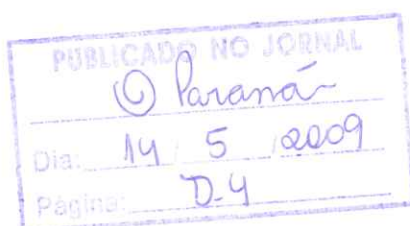 PUBLICADO NO JORNAL
O Paraná
Dia: 14 / 5 / 2009
Página: D-4